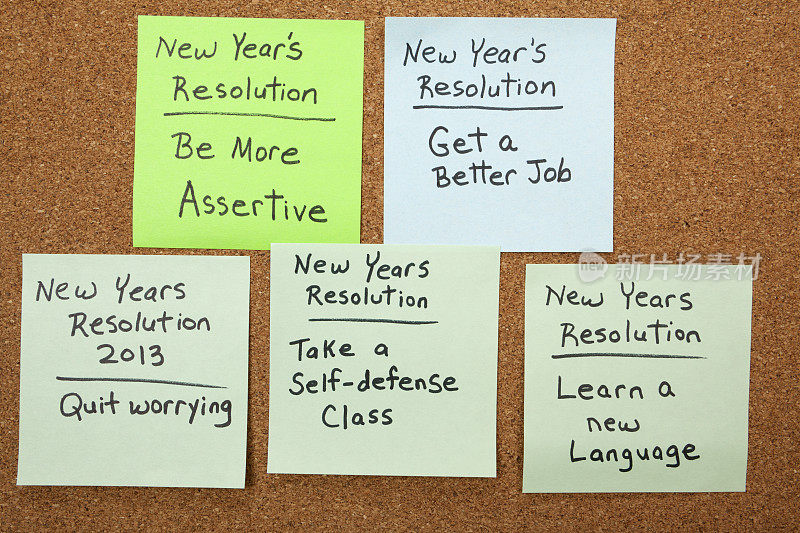 New Year's
Resolution
Be More
Assertive
New Year's
Resolution
Get a
Better Job
New Years
Resolution
2013
Quit worrying
New Years
Resolution
Take a
Self-defense
Class
New Years
Resolution
Learn a
new
Language
new 新片场素材